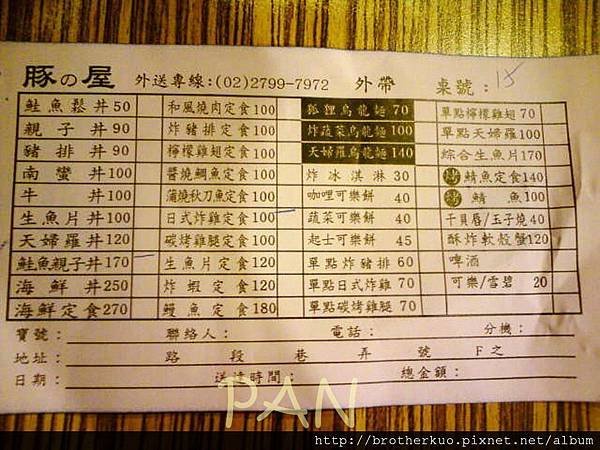 豚の屋 外送專線:(02)2799-7972 外帶 桌號: 15
鮭魚鬆丼 50 和風燒肉定食 100 狐狸烏龍麵 70 單點檸檬雞翅 70
親子丼 90 炸豬排定食 100 炸蔬菜烏龍麵 100 單點天婦羅 100
豬排丼 90 檸檬雞翅定食 100 天婦羅烏龍麵 140 綜合生魚片 170
南蠻丼 100 醬燒鯛魚定食 100 炸冰淇淋 30 烤鯖魚定食 140
牛丼 100 蒲燒秋刀魚定食 100 咖哩可樂餅 40 烤鯖魚 100
生魚片丼 100 日式炸雞定食 100 蔬菜可樂餅 40 干貝唇/玉子燒 40
天婦羅丼 120 碳烤雞腿定食 100 起士可樂餅 45 酥炸軟殼蟹 120
鮭魚親子丼 170 生魚片定食 120 單點炸豬排 60 啤酒
海鮮丼 250 炸蝦定食 120 單點日式炸雞 70 可樂/雪碧 20
海鮮定食 270 鰻魚定食 180 單點碳烤雞腿 70
寶號: 聯絡人: 電話: 分機:
地址: 路 段 巷 弄 號 F之
日期: 送達時間: 總金額:
PAN
http://brotherkuo.pixnet.net/album